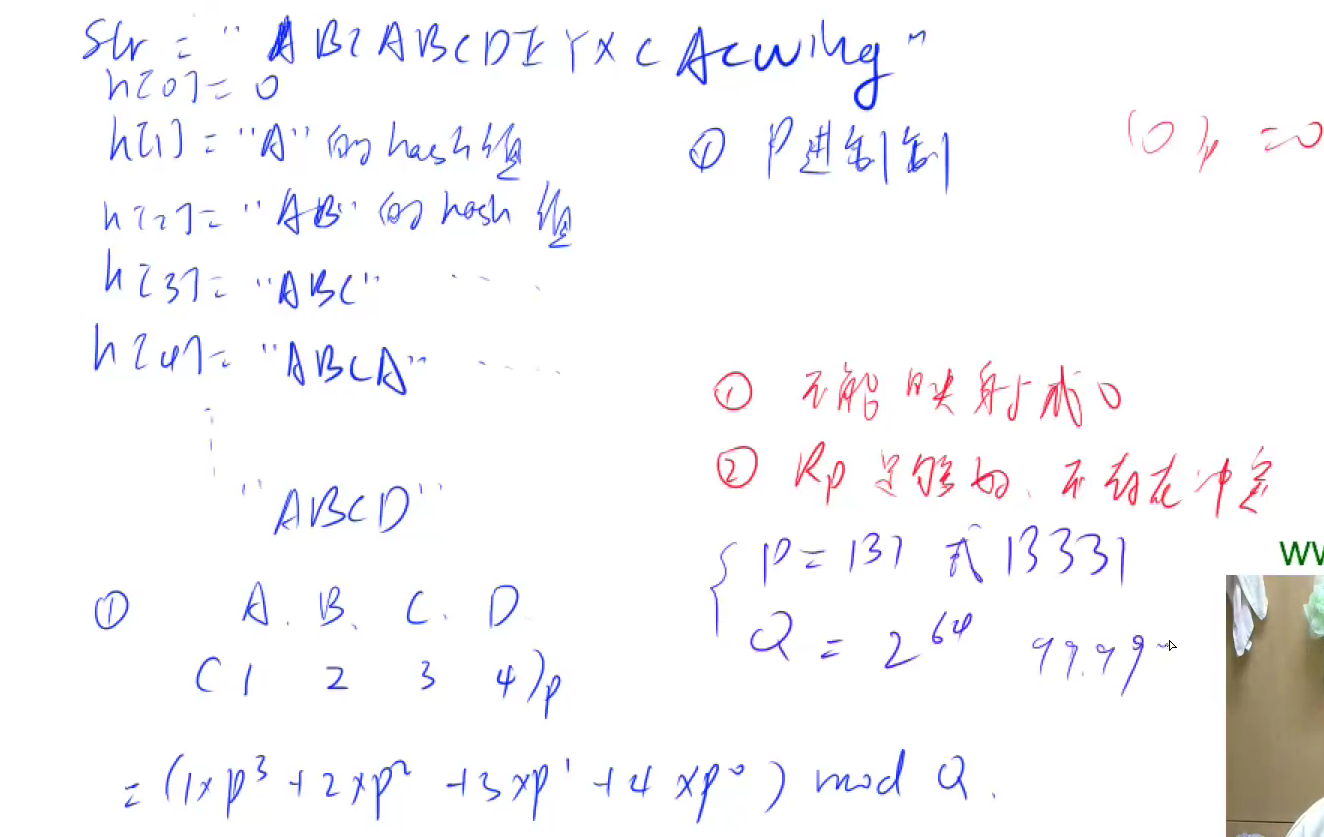 Str = "ABCABCDEYXCAcwing"
h[0] = 0
h[1] = "A" 的 hash 值
h[2] = "AB" 的 hash 值
h[3] = "ABC" ....
h[4] = "ABCA" ....
"ABCD"
① A. B. C. D
(1 2 3 4)p
= (1×p³ + 2×p² + 3×p¹ + 4×p⁰) mod Q.
① P进制
(0)p = 0
① 不能映射成0
② Rp 足够好、不存在冲突
{ P = 131 或 13331
Q = 2⁶⁴ 99.99